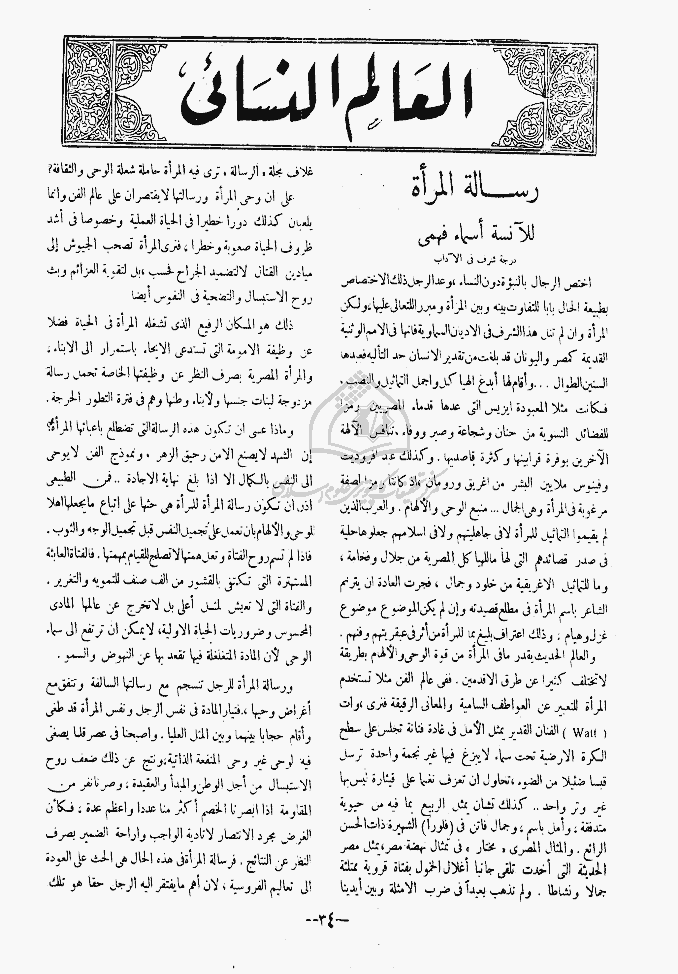 العالم النسائي
رسالة المرأة
للآنسة أسماء فهمى
درجة شرف فى الآداب
اختص الرجال بالنبؤة دون النساء، وعد الرجل ذلك الاختصاص
بطبيعة الحال بابا للتفاوت بينه وبين المرأة ومبررا للتعالى عليها، ولكن
المرأة وان لم تنل هذا الشرف فى الاديان السماوية فانها فى الامم الوثنية
القديمة كمصر واليونان قد بلغت من تقدير الانسان حد التأليه فعبدها
السنين الطوال ... وأقام لها أبدع الهياكل واجمل التماثيل والنصب .
فكانت مثلا المعبودة ايزيس التى عدها قدماء المصريين رمزا
للفضائل النسوية من حنان وشجاعة وصبر ووفاء، تنافس الآلهة
الآخرين بوفرة قرابينها وكثرة قاصديها . وكذلك عبد افروديت
وفينوس ملايين البشر من اغريق ورومان اذ كانتا رمزا لصفة
مرغوبة فى المرأة وهى الجمال ... منبع الوحى والألهام . والعرب الذين
لم يقيموا التماثيل للمرأة لا فى جاهليتهم ولا فى اسلامهم جعلوها حلية
فى صدر قصائدهم التى لها ما للهياكل المصرية من جلال وفخامة ،
وما للتماثيل الاغريقية من خلود وجمال ، فجرت العادة ان يترنم
الشاعر باسم المرأة فى مطلع قصيدته وإن لم يكن الموضوع موضوع
غزل وهيام ، وذلك اعتراف بليغ بما للمرأة من أثر فى عبقريتهم وفنهم .
والعالم الحديث يقدر مافى المرأة من قوة الوحى والألهام بطريقة
لاتختلف كثيرا عن طرق الاقدمين . ففى عالم الفن مثلا تستخدم
المرأة للتعبير عن العواطف السامية والمعانى الرقيقة فنرى ،وات
( Watt ) الفنان القدير يمثل الأمل فى غادة فتانة تجلس على سطح
الكرة الارضية تحت سماء لايبزغ فيها غير نجمة واحدة ترسل
قبسا ضئيلا من الضوء، تحاول ان تعزف نغما على قيثارة ليس بها
غير وتر واحد .. كذلك تشان يمثل الربيع بما فيه من حيوية
متدفقة ، وأمل باسم ، وجمال فاتن فى (فلورا) الشهيرة ذات الحسن
الرائع . والمثال المصرى ، مختار ، فى تمثال نهضة مصر، يمثل مصر
الحديثة التى أخذت تلقى جانبا أغلال الخمول بفتاة قروية ممتلئة
جمالا ونشاطا . ولم نذهب بعيداً فى ضرب الامثلة وبين أيدينا
غلاف مجلة ، الرسالة ، ترى فيه المرأة حاملة شعلة الوحى والثقافة؟
على ان وحى المرأة ورسالتها لايقتصران على عالم الفن وانما
يلعبان كذلك دورا خطيرا فى الحياة العملية وخصوصا فى أشد
ظروف الحياة صعوبة وخطرا ، فنرى المرأة تصحب الجيوش إلى
ميادين القتال لالتضميد الجراح فحسب، بل لتقوية العزائم وبث
روح الاستبسال والتضحية فى النفوس أيضا
ذلك هو المكان الرفيع الذى تشغله المرأة فى الحياة فضلا
عن وظيفة الامومة التى تستدعى الايحاء باستمرار الى الابناء ،
والمرأة المصرية بصرف النظر عن وظيفتها الخاصة تحمل رسالة
مزدوجة لبنات جنسها ولأبناء وطنها وهم فى فترة التطور الحرجة .
وماذا عسى ان تكون هذه الرسالة التى تضطلع باعبائها المرأة؟
إن الشهد لايصنع الا من رحيق الزهر . ونموذج الفن لايوحى
الى النفس بالكمال الا اذا بلغ نهاية الاجادة .. فمن الطبيعى
اذن ان تكون رسالة المرأة للمرأة هى حثها على اتباع مايجعلها اهلا
للوحى والألهام بان نعمل على تجميل النفس قبل تجميل الوجه والثوب .
فاذا لم تسم روح الفتاة وتعل همتها لاتصلح للقيام بمهمتها . فالفتاة العابثة
المستهترة التى تكتفى بالقشور من الف صنف للتمويه والتغرير .
والفتاة التى لا تعيش لمثل أعلى بل لاتخرج عن عالمها المادى
المحسوس وضروريات الحياة الاولية، لايمكن ان ترتفع الى سماء
الوحى لأن المادة المتغلغلة فيها تقعد بها عن النهوض والسمو .
ورسالة المرأة للرجل تنسجم مع رسالتها السالفة وتتفق مع
أغراض وحيها ، فتيار المادة فى نفس الرجل ونفس المرأة قد طغى
وأقام حجابا بينهما وبين المثل العليا . واصبحنا فى عصر قلما يصغى
فيه لوحى غير وحى المنفعة الذاتية، ونتج عن ذلك ضعف روح
الاستبسال من أجل الوطن والمبدأ والعقيدة ، وصرنا نفر من
المقاومة اذا ابصرنا الخصم أكثر منا عددا واعظم عدة ، فكأن
الغرض مجرد الانتصار لاتأدية الواجب واراحة الضمير بصرف
النظر عن النتائج . فرسالة المرأة فى هذه الحال هى الحث على العودة
الى تعاليم الفروسية ، لان أهم مايفتقر اليه الرجل حقا هو تلك
—٣٤--